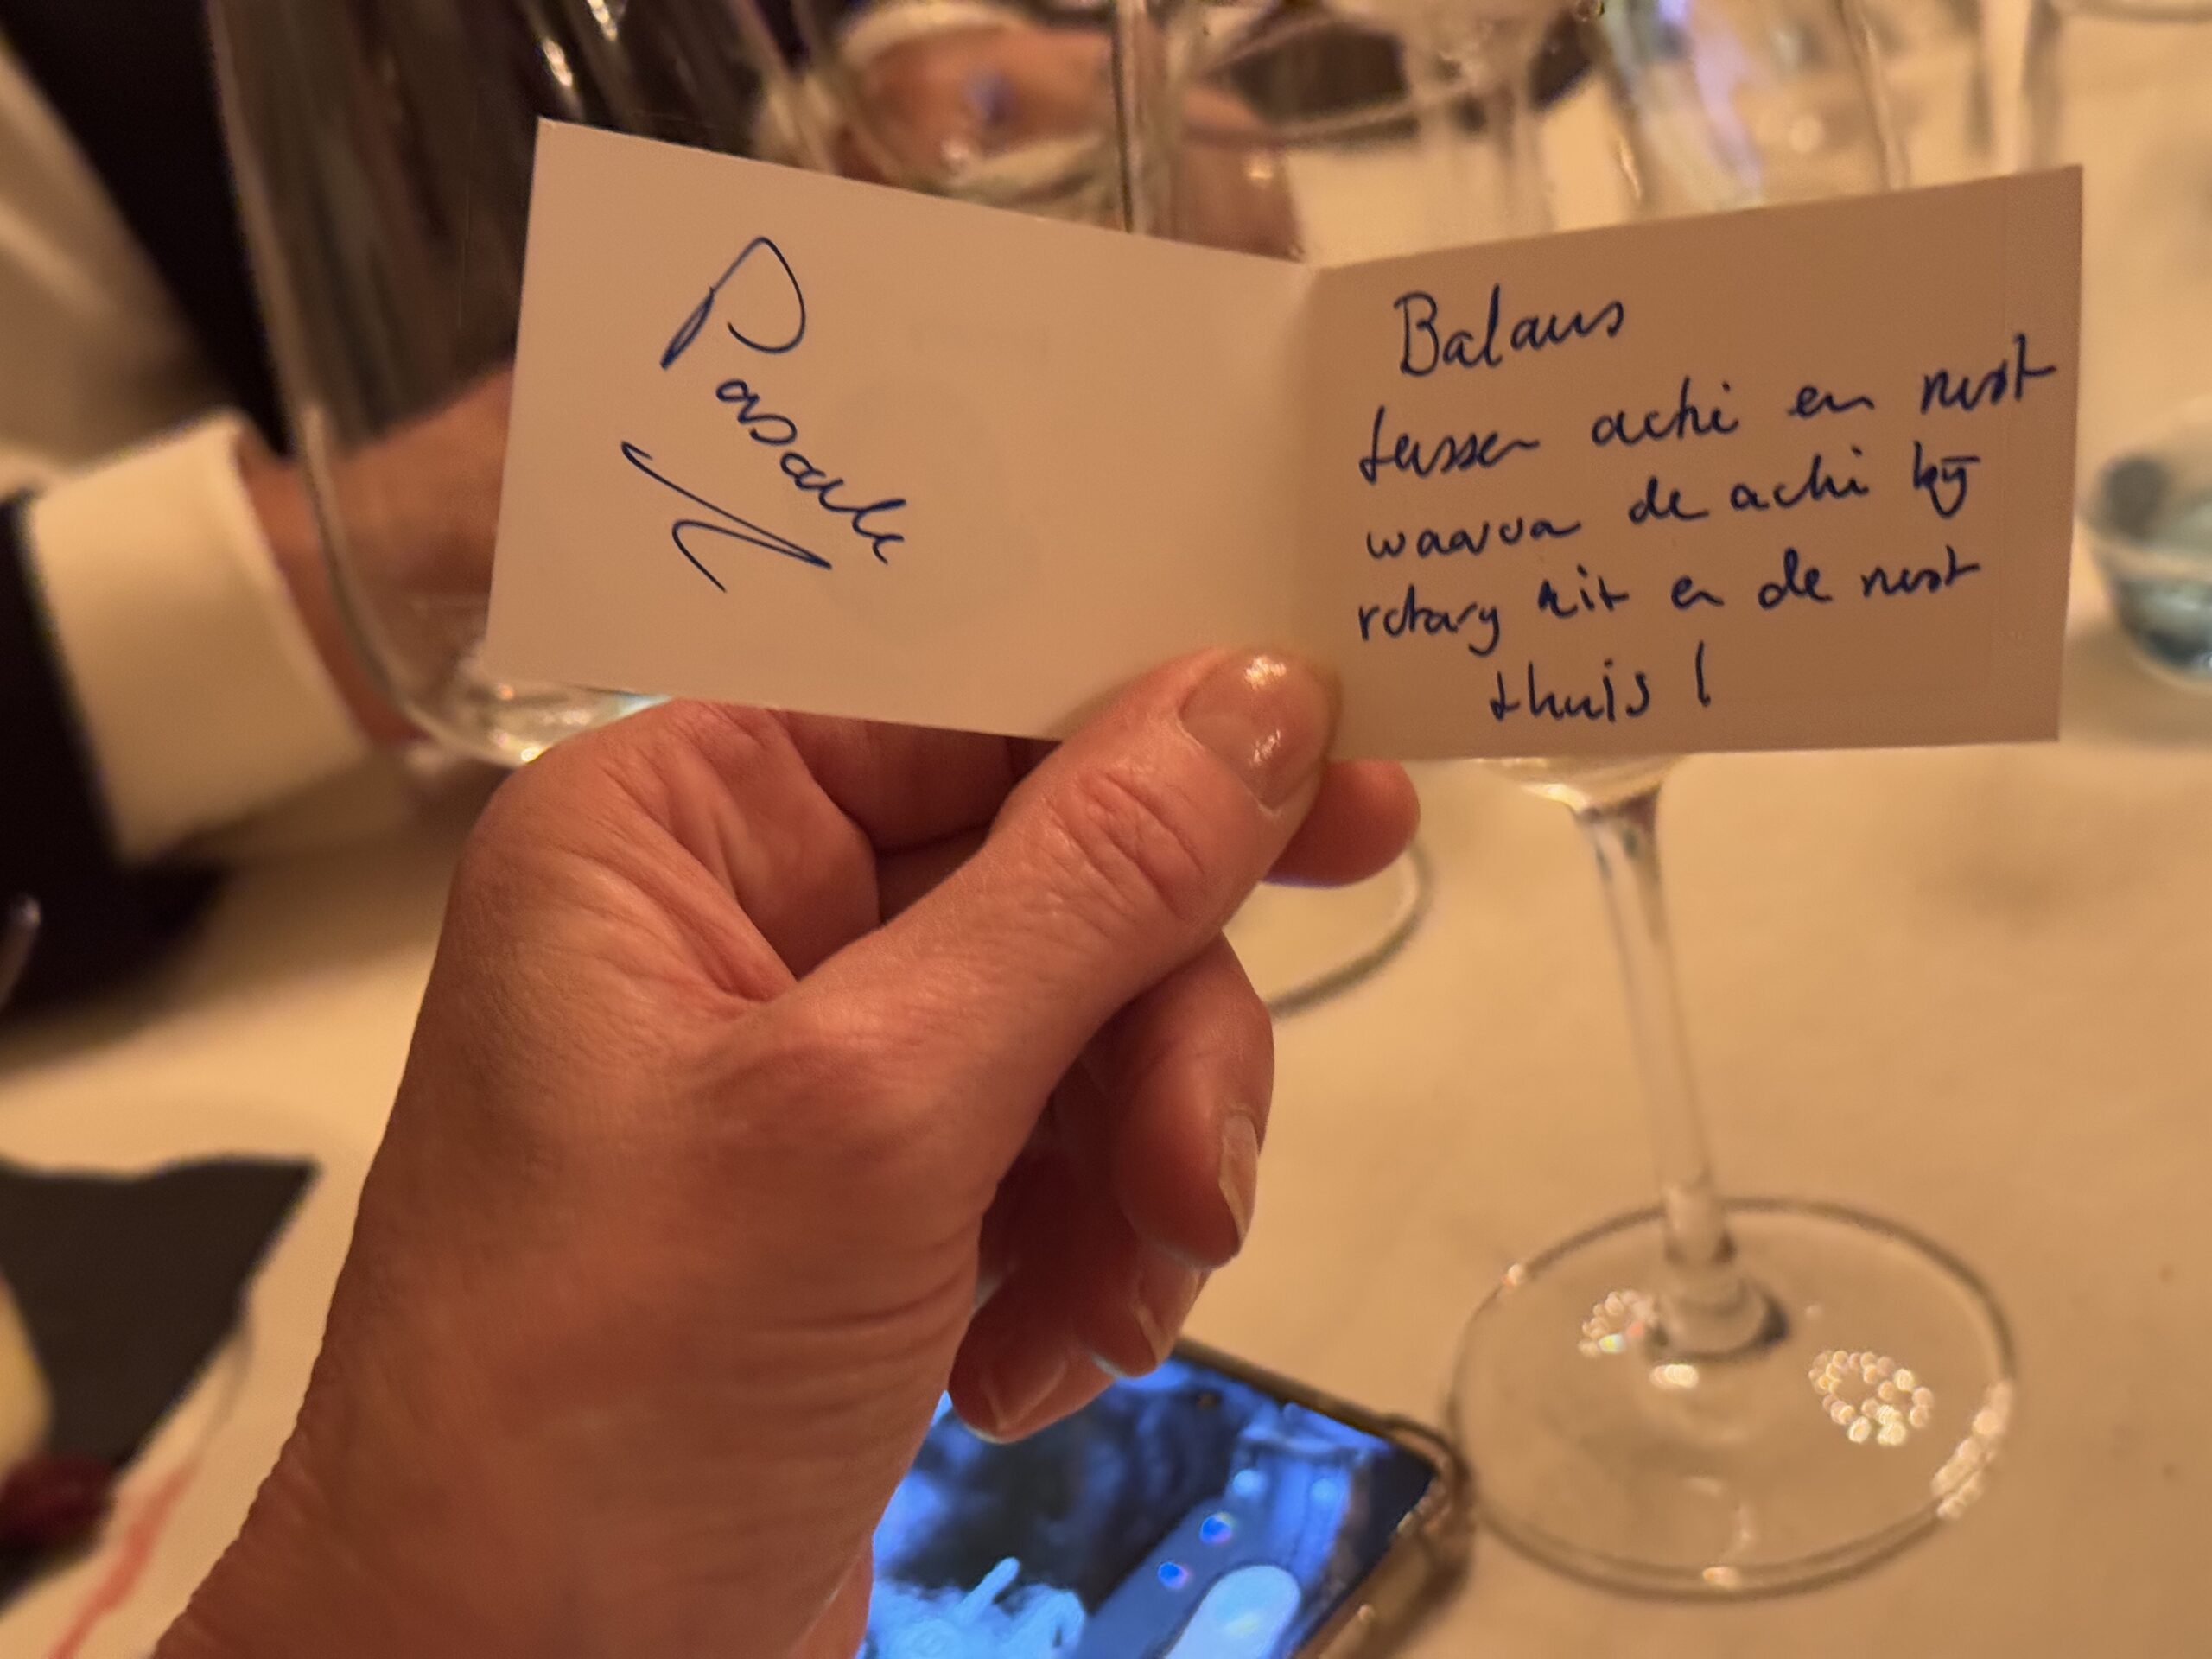 Pascale
Balans
tussen actie en rust
waarvan de actie bij
rotary zit en de rust
thuis !